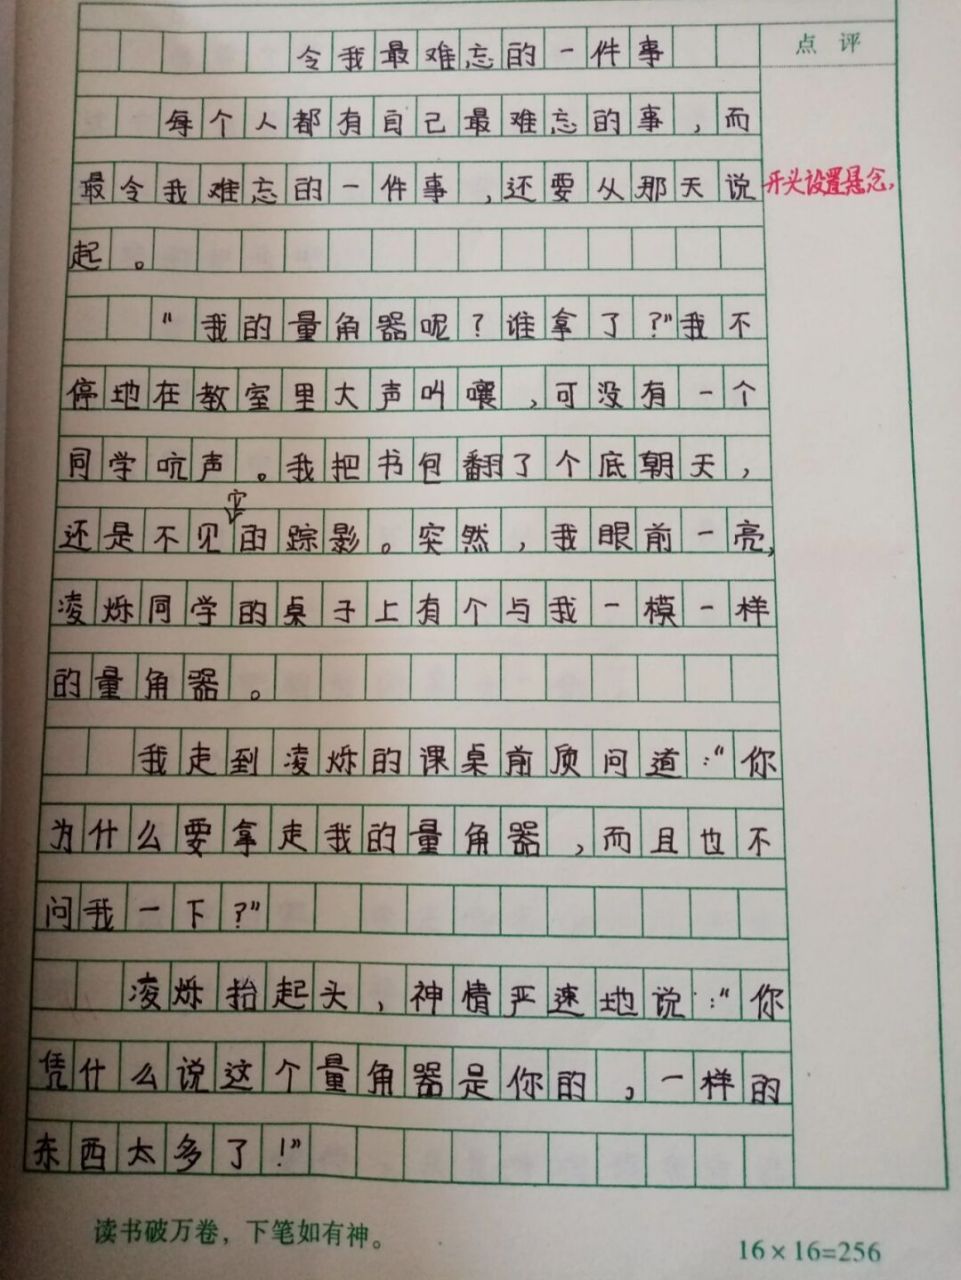 令我最难忘的一件事
点 评
每个人都有自己最难忘的事,而
最令我难忘的一件事,还要从那天说
开头设置悬念,
起。
“我的量角器呢?谁拿了?”我不
停地在教室里大声叫嚷,可没有一个
同学吭声。我把书包翻了个底朝天,
还是不见它的踪影。突然,我眼前一亮,
凌烁同学的桌子上有个与我一模一样
的量角器。
我走到凌烁的课桌前质问道:“你
为什么要拿走我的量角器,而且也不
问我一下?”
凌烁抬起头,神情严速地说:“你
凭什么说这个量角器是你的,一样的
东西太多了!”
读书破万卷,下笔如有神。
16×16=256